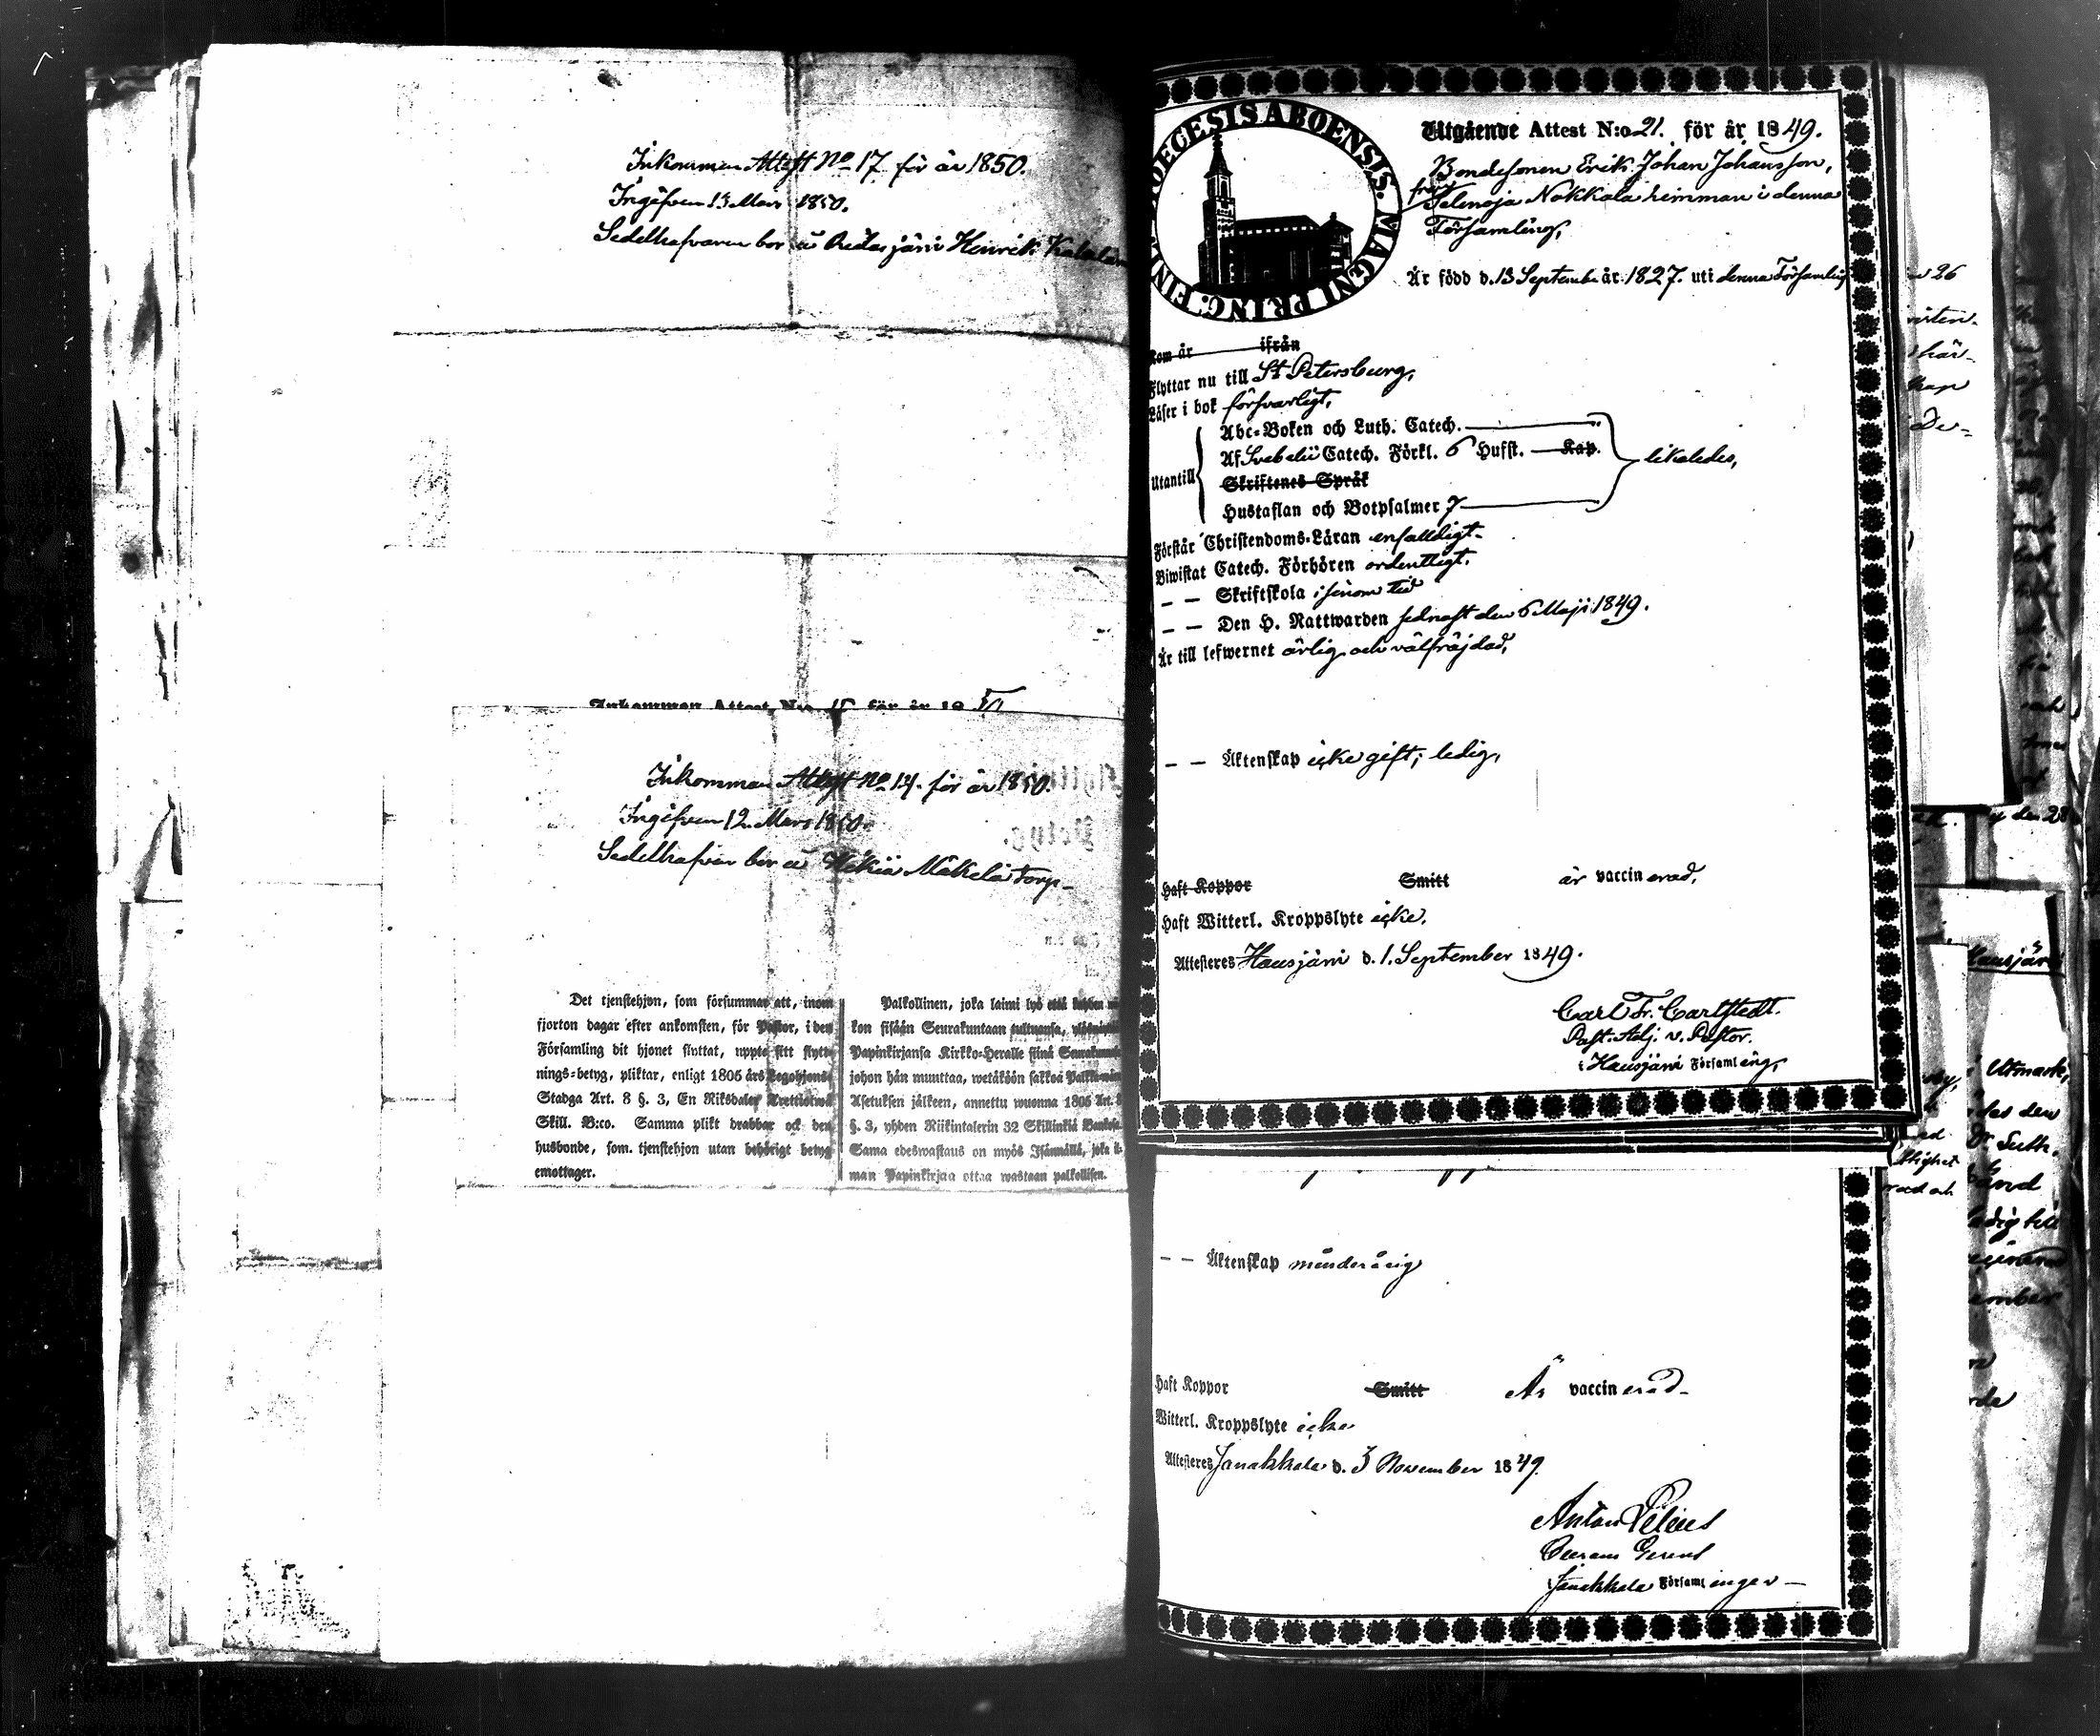 Inkommen Attest No 17 för år 1850.
Ingifven 13 Mars 1850.
Sedelhafvaren bor å Ridasjärvi Henrik
Inkommen Attest N:o 15 för år 18
Inkommen Attest No 14. för år 1850.
Ingifven 12 Mars 1850.
Sedelhafvar bor å Mäkelä torp
Det tjenstehjon, som försummar att, inom
fjorton dagar efter ankomsten, för Pastor, i den
Församling dit hjonet flyttat, uppte sitt flytt-
nings-betyg, pliktar, enligt 1805 års Legohjons-
Stadga Art. 8 §. 3, En Riksdaler Trettiotwå
Skill. B:co. Samma plikt drabbar ock den
husbonde, som. tjenstehjon utan behörigt betyg
emottager.
Palkollinen, joka laimi lyö että kahden
kon sisään Seurakuntaan tultuansa,
Papinkirjansa Kirkko-Heralle siinä
johon hän muuttaa, wetäköön sakkoa
Asetuksen jälkeen, annettu wuonna 1805 Art. 8
§. 3, yhden Riikintalerin 32 Skillinkiä Bankosa.
Sama edeswastaus on myös Isännällä, joka il-
man Papinkirjaa ottaa wastaan palkollisen.
DIOECESIS ABOENSIS. MAGNI PRINC. FIN
Utgående Attest N:o 21. för år 1849.
Bondesonen Erik Johan Johansson,
från
Selenoja Nokkala hemman i denna
Församling,
Är född d. 13 September år 1827. uti denna Församling
Kom år ifrån
Flyttar nu till St Petersburg,
Läser i bok försvarligt,
Abc-Boken och Luth. Catech.
Utantill Af Svebelii Catech. Förkl. 6 Hufst. Kap. likaledes,
Skriftenes Språk
Hustaflan och Botpsalmer 7
Förstår Christendoms-Läran enfalldigt.
Biwistat Catech. Förhören ordentligt.
— — Skriftskola i sinom tid
— — Den H. Nattwarden sednast den 6 Maji 1849.
Är till lefwernet ärlig och välfräjdad,
— — Äktenskap icke gift; ledig,
Haft Koppor Smitt är vaccinerad,
Haft Witterl. Kroppslyte icke.
Attesteres Hausjärvi d. 1. September 1849.
Carl Fr. Carlstedt.
Past. Adj. v. Pastor.
i Hausjärvi Församling,
— — Äktenskap minderårig
Haft Koppor Smitt Är vaccinerad
Witterl. Kroppslyte icke
Attesteres Janakkala d. 3 November 1849.
Anton
Janakkala Församlingen